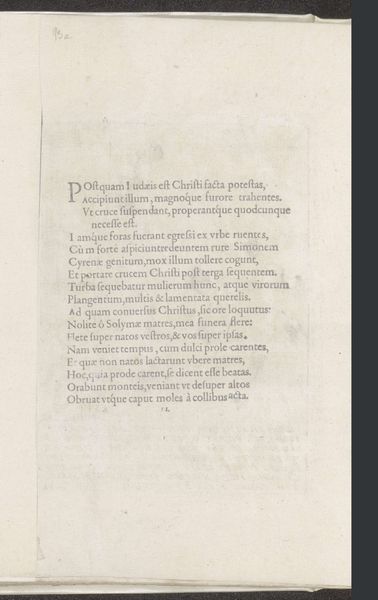 POstquam Iudæis est Christi facta potestas,
Accipiunt illum, magnoq́ue furore trahentes.
Vt cruce suspendant, properantq́ue quodcunque
necesse est.
Iamq́ue foras fuerant egressi ex vrbe ruentes,
Cùm fortè aspiciunt redeuntem rure Simonem
Cyrenæ genitum, mox illum tollere cogunt,
Et portare crucem Christi post terga sequentem.
Turba sequebatur mulierum hunc, atque virorum
Plangentum, multis & lamentata querelis.
Ad quam conuersus Christus, sic ore loquutus:
Nolite ô Solymæ matres, mea funera flere:
Flete super natos vestros, & vos super ipsas.
Nam veniet tempus, cum dulci prole carentes,
Et quæ non natos lactarunt vbere matres,
Hoc, quia prode carent, se dicent esse beatas.
Orabunt monteis, veniant vt desuper altos
Obruat vtq́ue caput moles à collibus acta.